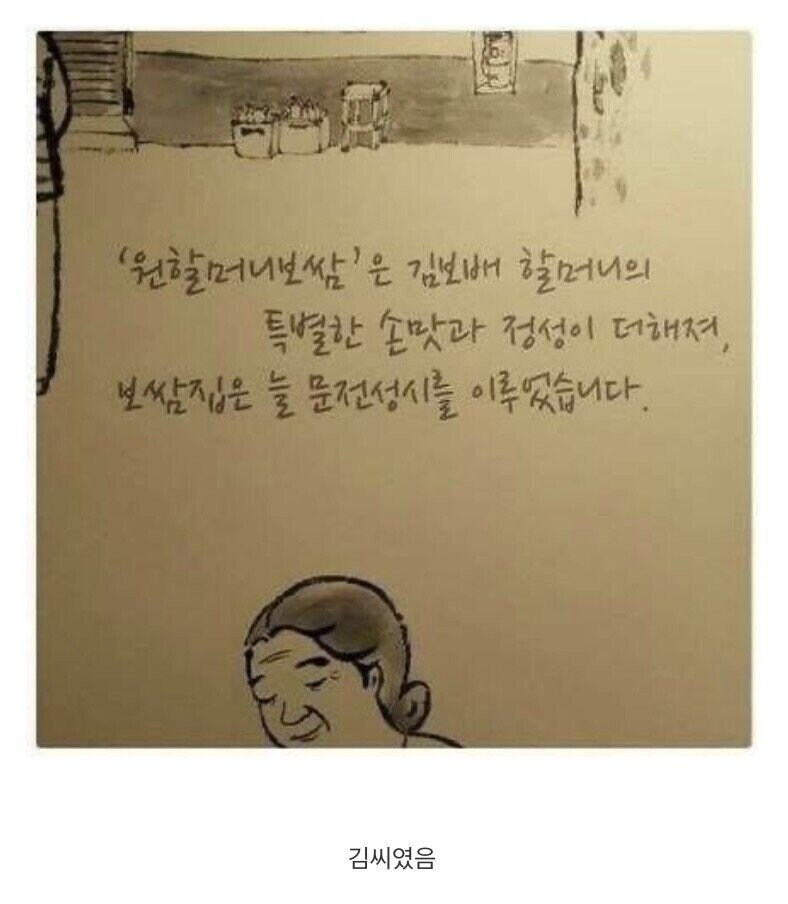 '원할머니보쌈'은 김보배 할머니의
특별한 손맛과 정성이 더해져,
보쌈집은 늘 문전성시를 이루었습니다.
김씨였음